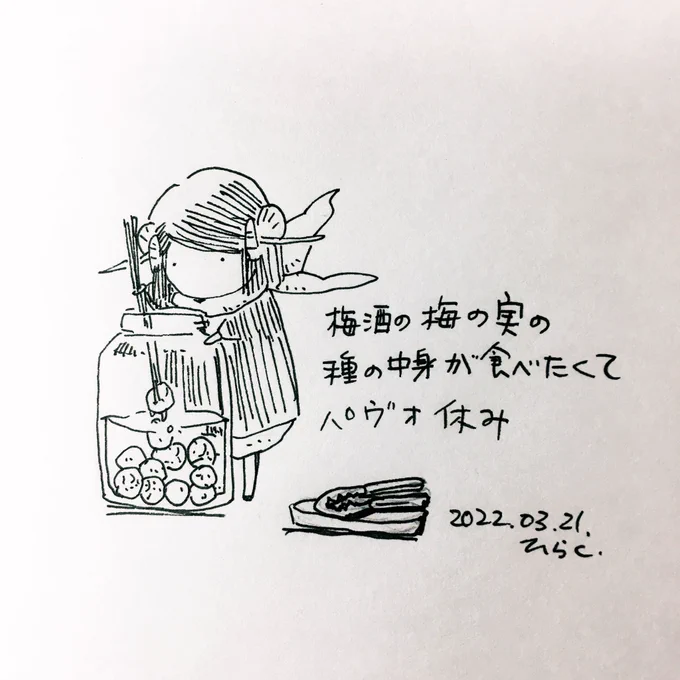 梅酒の梅の実の
種の中身が食べたくて
パヴォ休み
2022.03.21.
ひらc.